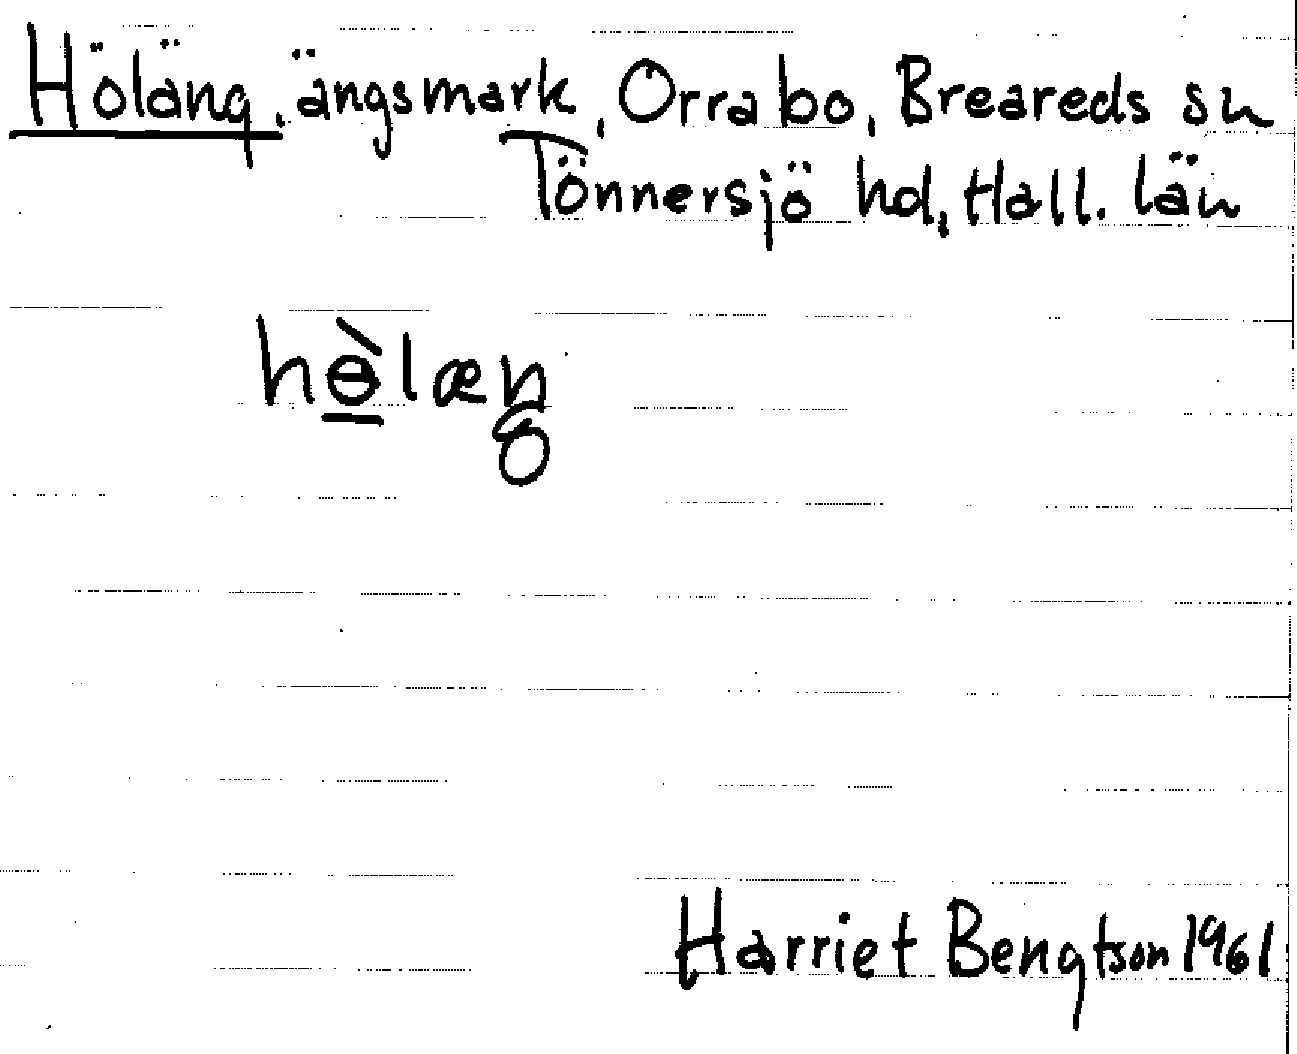 Höläng, ängsmark, Orrabo, Breareds sn
Tönnersjö hd, Hall. län
hɵ̲̀læŋ
Harriet Bengtson 1961